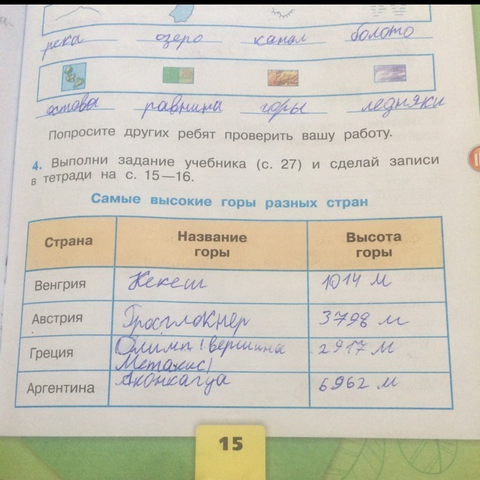 река озеро канал болото
остовы равнина горы ледники
Попросите других ребят проверить вашу работу.
4. Выполни задание учебника (с. 27) и сделай записи
в тетради на с. 15—16.
Самые высокие горы разных стран
Страна Название горы Высота горы
Венгрия Кекеш 1014 м
Австрия Гросглокнер 3798 м
Греция Олимп (вершина Метакис) 2917 м
Аргентина Аконкагда 6962 м
15